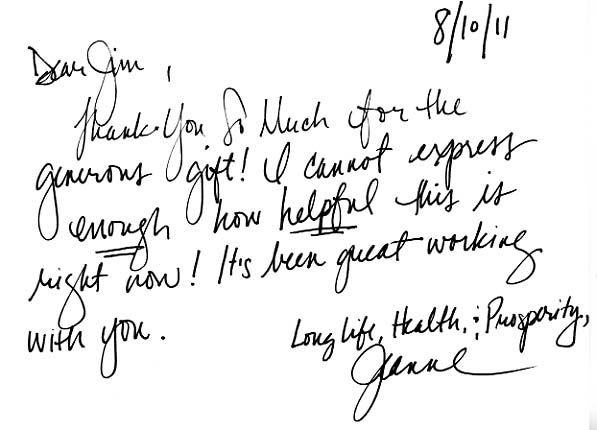 8/10/11
Dear Jim,
Thank You So Much for the
generous gift! I cannot express
enough how helpful this is
right now! It's been great working
with you.
Long life, Health, & Prosperity,
Jeanne